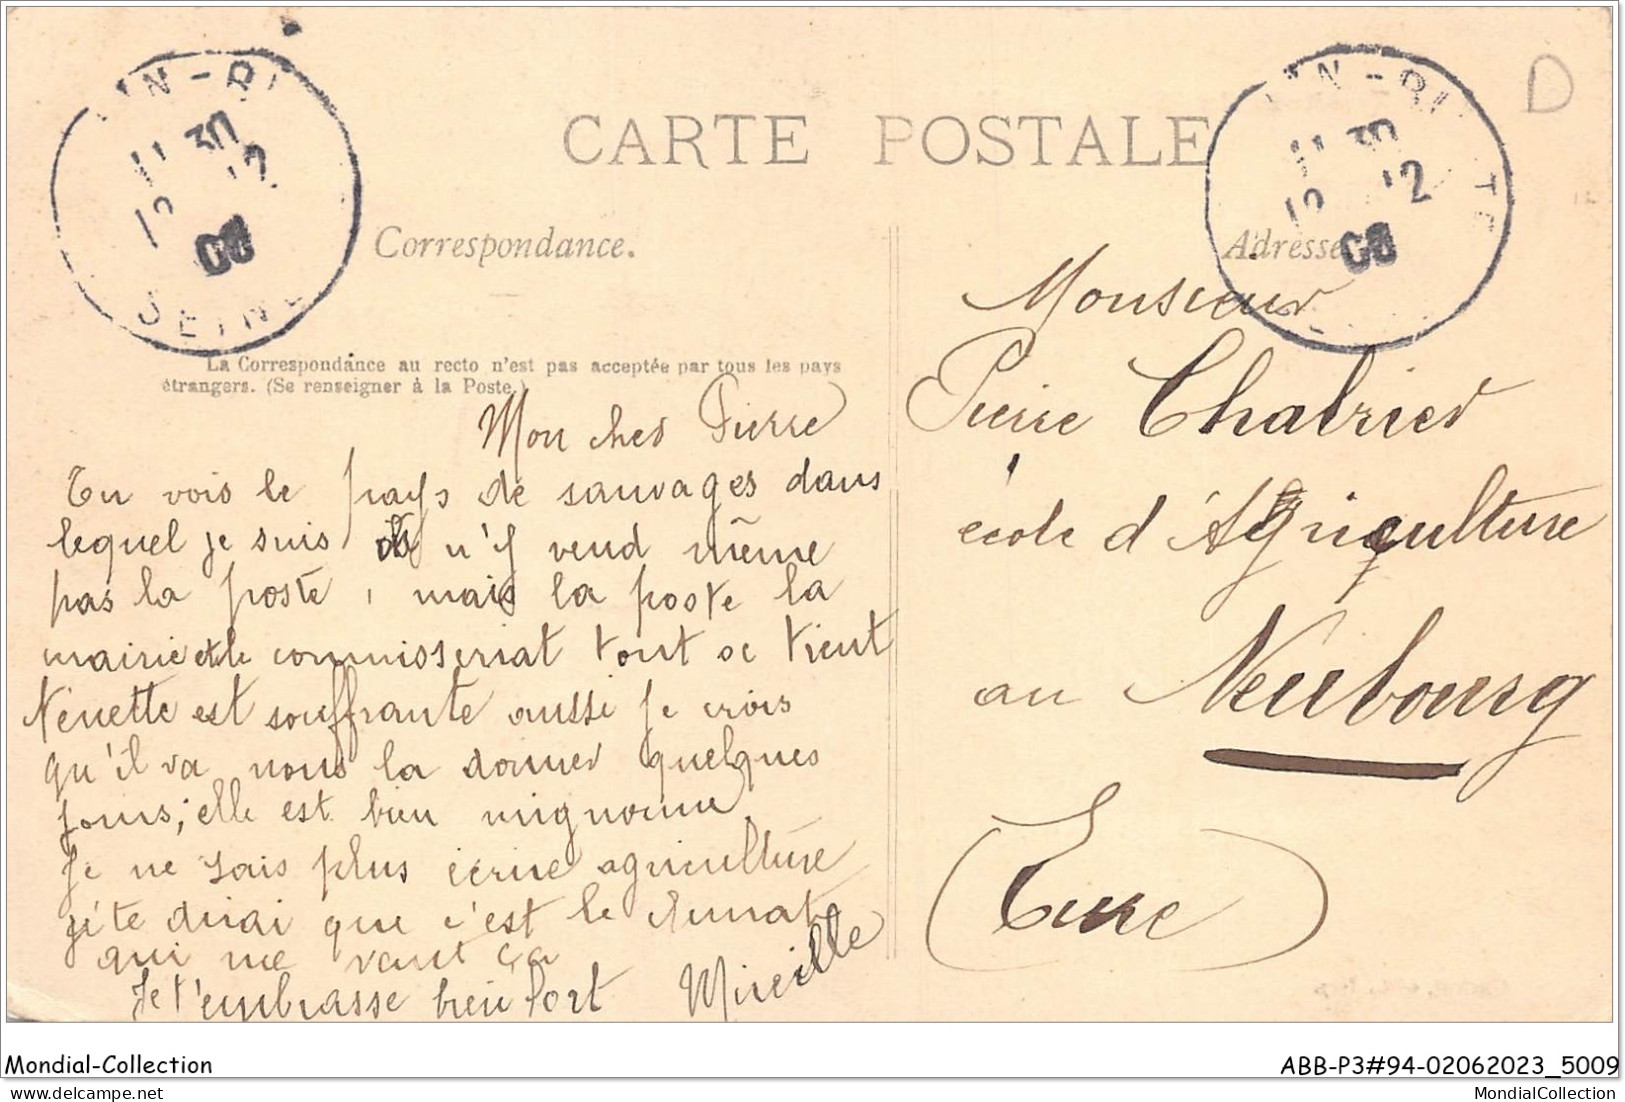 CARTE POSTALE
Correspondance.
Adresse
11 30
12 12
08
SEINE
11 30
12 12
08
La Correspondance au recto n'est pas acceptée par tous les pays
étrangers. (Se renseigner à la Poste.)
Mon cher Pierre
Tu vois le pays de sauvages dans
lequel je suis n'y vend même
pas la poste, mais la poste la
mairie et le commisseriat tout se tient
Nénette est souffrante aussi je crois
qu'il va nous la donner quelques
jours; elle est bien mignonne
Je ne sais plus écrire agriculture
je te dirai que c'est le
qui me vaut ça
Je t'embrasse bien fort Mireille
Monsieur
Pierre Chabrier
école d'Agriculture
au Neubourg
(Eure)
D
Mondial-Collection
ABB-P3#94-02062023_5009
MondialCollection